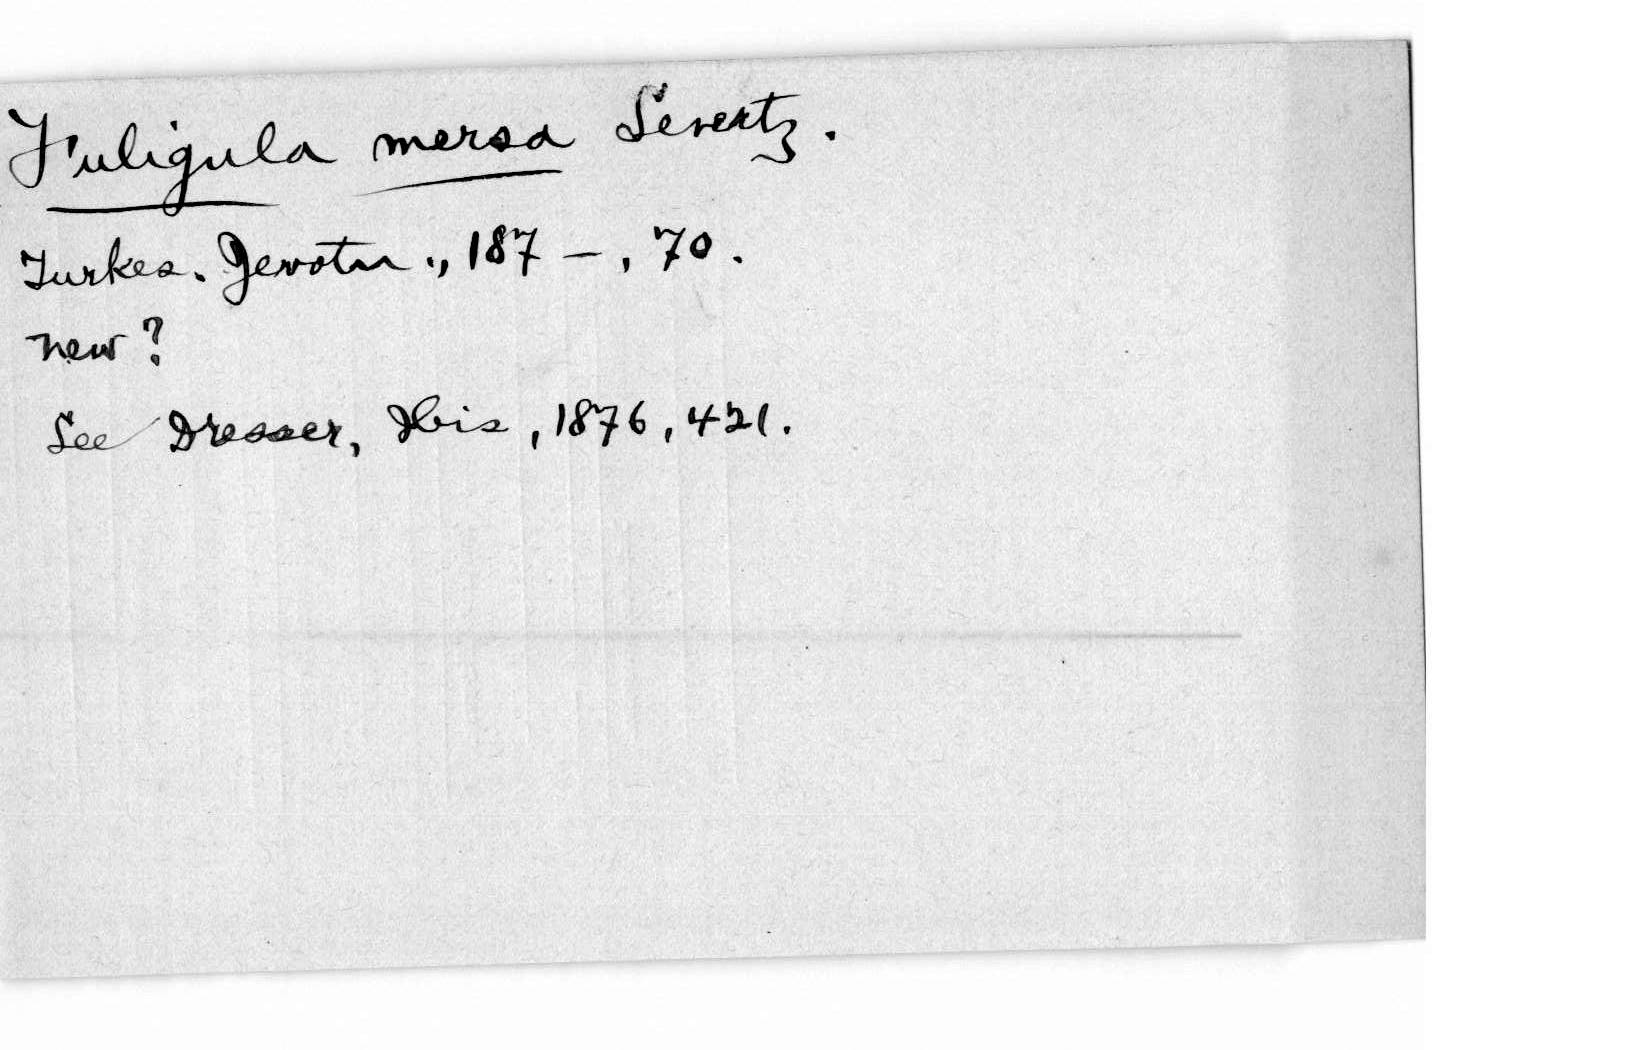 Fuligula mersa Severtz.
Turkes. Jevotn., 187-, 70.
new?
See Dresser, Ibis, 1876, 421.